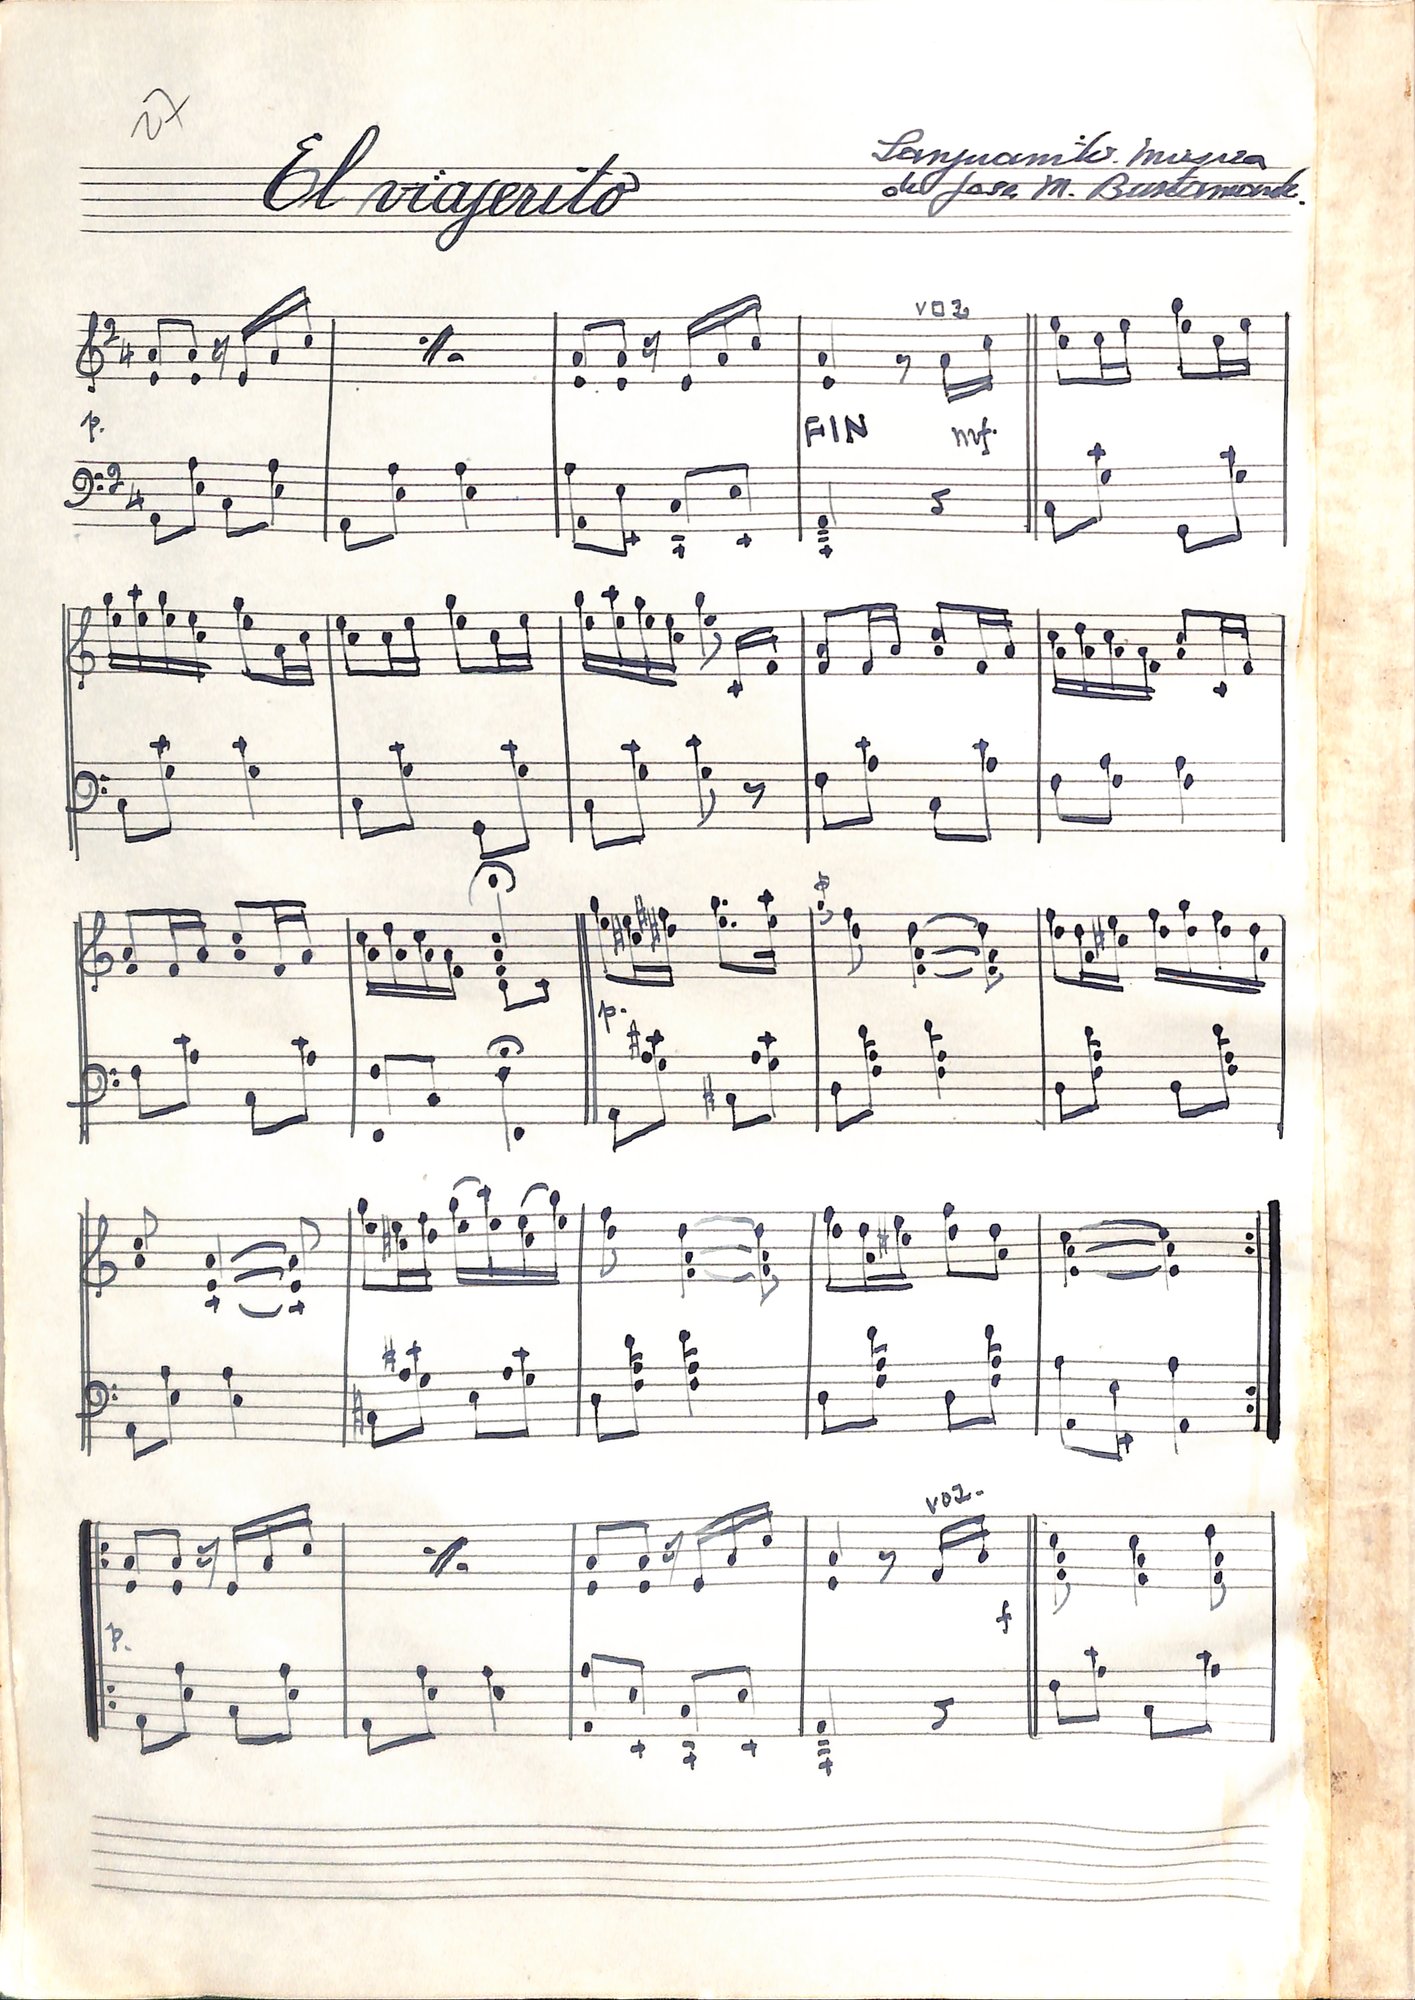 27
El viajerito
Sanjuanito. Musica
de Jose M. Bustamante.
2
4
voz
p.
FIN
mf.
2
4
p.
voz.
p.
f